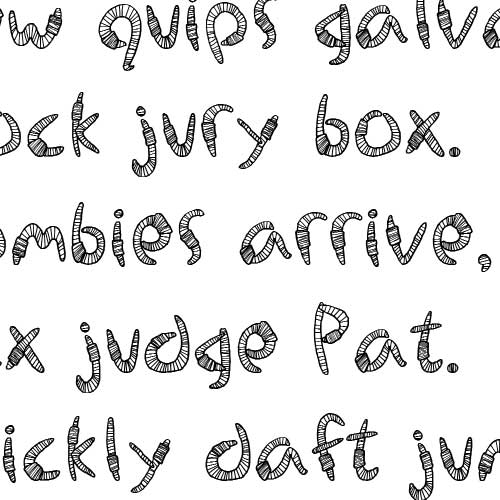 w quips galva
ock jury box.
ombies arrive,
x judge Pat.
ickly daft jum